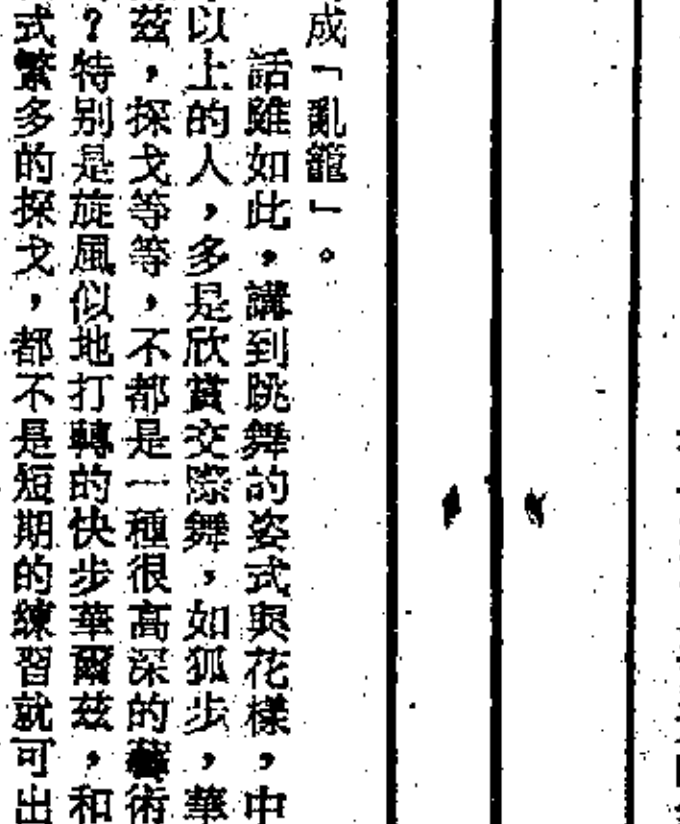 成「亂籠」。
話雖如此，講到跳舞的姿式與花樣，中
以上的人，多是欣賞交際舞，如狐步，華
茲，探戈等等，不都是一種很高深的藝術
？特别是旋風似地打轉的快步華爾茲，和
式繁多的探戈，都不是短期的練習就可出